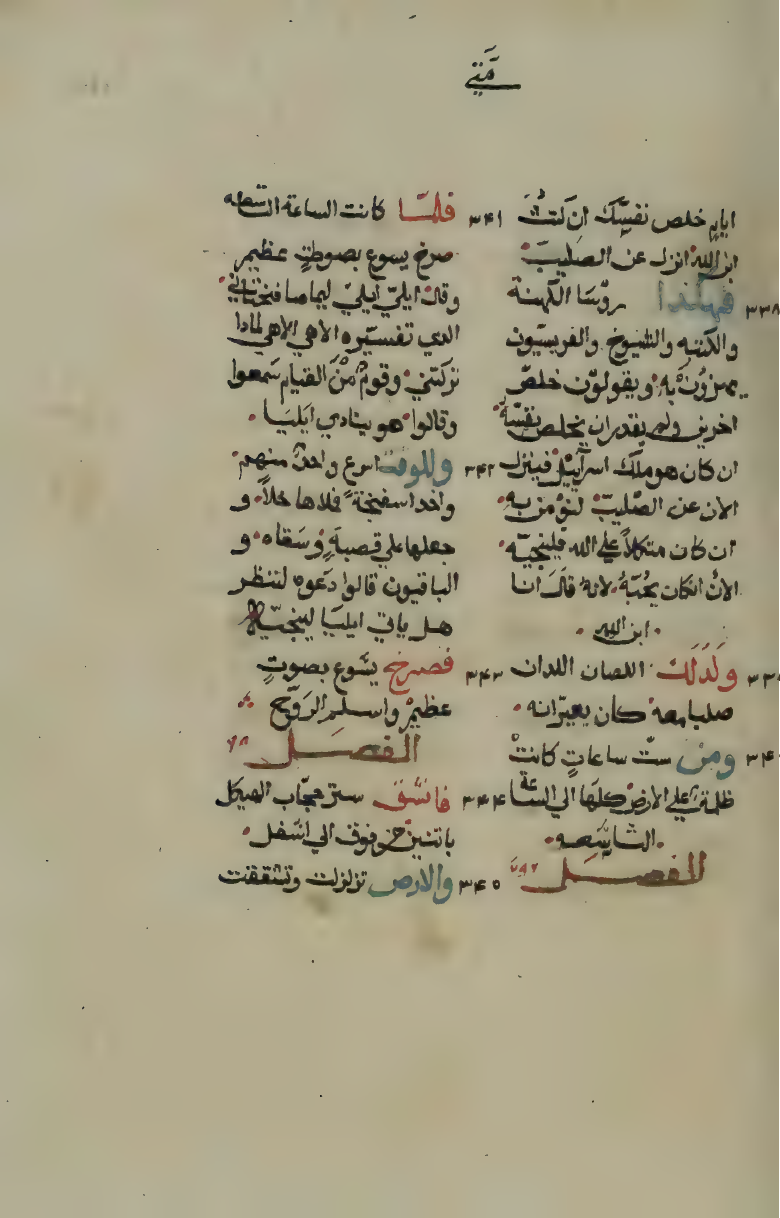 متي
ايام خلص نفسك ان كنت
ابن الله انزل عن الصليب
٣٣٨ فهكذا روسا الكهنة
والكتبه والشيوخ والفريسيون
يهزون به ويقولون خلص
اخرين ولم يقدر ان يخلص نفسه
ان كان هو ملك اسرآييل فينزل
الان عن الصليب لنومن به
ان كان متكلاً علي الله فلينجيه
الان انكان يحبه لانه قال انا
ابن الله
ولذلك اللصان اللدان
صلبا معه كان يعيرانه
ومن ستّ ساعاتٍ كانت
ظلمة علي الارض كلها الي الساعة
التاسعه
الفصل
٣٤١ فلما كانت الساعة التاسعه
صرخ يسوع بصوتٍ عظيم
وقال ايلي ايلي ليماصافختاني
الدي تفسيره الاهي الاهي لمادا
تركتني وقوم من القيام سمعوا
وقالوا هو ينادي ايليا
٣٤٢ وللوقت اسرع واحد منهم
واخد اسفنجة فلاها خلاً و
جعلها علي قصبةٍ وسقاه و
الباقيون قالوا دعوه لننظر
هل ياتي ايليا لينجيه
٣٤٣ فصرخ يشوع بصوتٍ
عظيم واسلم الروح
الفصل
٣٤٤ فانشق ستر حجاب الهيكل
باتنين من فوق الي اسفل
٣٤٥ والارض تزلزلت وتشققت